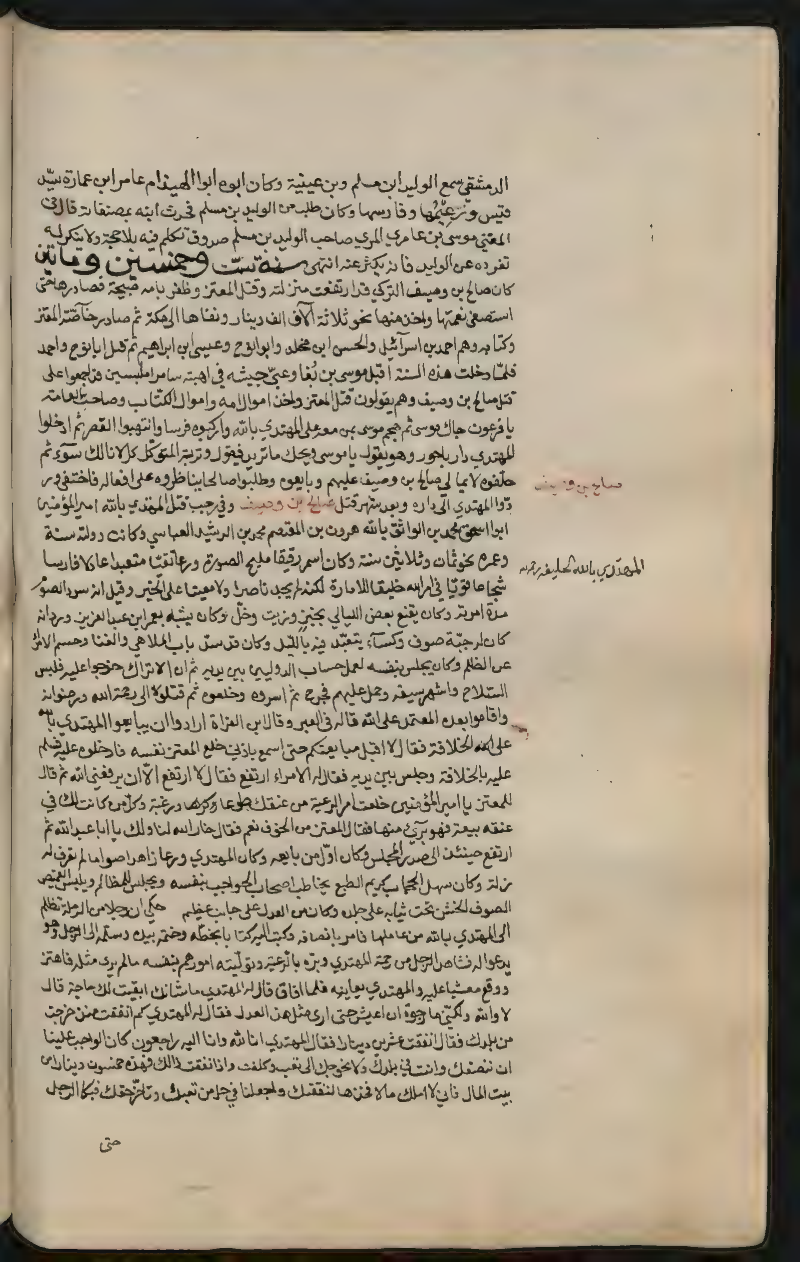 الدمشقي سمع الوليد ابن مسلم وبن عيينة وكان ابوه ابوا الهيذام عامر ابن عمارة سيد
قيس وزعيمها وفارسها وكان طلب من الوليد بن مسلم فحدث ابنه بمصنفاته قال في
المغني موسى بن عامر المري صاحب الوليد بن مسلم صدوق تكلم فيه بلا حجة ولا ينكر له
تفرده عن الوليد فانه يكثر عنه انتهى سنة ست وخمسين وماتين
كان صالح بن وصيف التركي قد ارتفعت منزلته وقتل المعتز وظفر بامه قبيحة فصادرها حتى
استصفى نعمتها واخذ منها نحو ثلاثة آلاف الف دينار ونفاها الى مكة ثم صادر خاصة المعتز
وكتابه وهم احمد بن اسرآئيل والحسن ابن مخلد وابوا نوح وعيسى ابن ابراهيم ثم قتل ابا نوح واحمد
فلما دخلت هذه السنة اقبل موسى بن بغا وعبى جيشه في اهبته سامرا ملبسين قد اجمعوا على
قتل صالح بن وصيف وهم يقولون قتل المعتز واخذ اموال امه واموال الكتاب وصاحت العامة
يا فرعون جاك موسى ثم هجم موسى بمن معه على المهتدي بالله واركبوه فرسا وانتهبوا القصر ثم ادخلوا
المهتدي دار ياجور وهو يقول يا موسى ويحك ما تريد فيقول وتربة المتوكل لا نالك سوء ثم
حلفوه لا يمالي صالح بن وصيف عليهم وبايعوه وطلبوا صالحا يناظروه على افعاله فاختفى ور
دوا المهتدي الى داره وبعد شهر قتل صالح بن وصيف وفي رجب قتل المهتدي بالله امير المؤمنين
ابوا اسحق محمد بن الواثق بالله هرون بن المعتصم محمد بن الرشيد العباسي وكانت دولته سنة
وعمره نحو ثمان وثلاثين سنة وكان اسمر رقيقا مليح الصورة ورعا تقيا متعبدا عادلا فارسا
شجاعا قويا في امر الله خليقا للامارة لكنه لم يجد ناصرا ولا معينا على الخير وقيل انه سرد الصوم
مدة امرته وكان يقنع بعض الليالي بخبز وزيت وخل وكان يشبه بعمر ابن عبد العزيز وورد انه
كان له جبة صوف وكساء يتعبد فيه بالليل وكان قد سد باب الملاهي والغنا وحسم الامرا
عن الظلم وكان يجلس بنفسه لعمل حساب الدواوين بين يديه ثم ان الاتراك خرجوا عليه فلبس
السلاح واشهر سيفه وحمل عليهم فجرح ثم اسروه وخلعوه ثم قتلوه الى رحمة الله ورضوانه
واقاموا بعده المعتمد على الله قاله في العبر وقال ابن الفرات ارادوا ان يبايعوا المهتدي بالله
على الخلافة فقال لا اقبل مبايعتكم حتى اسمع باذني خلع المعتز نفسه فادخلوه عليه فسلم
عليه بالخلافة وجلس بين يديه فقال له الامراء ارتفع فقال لا ارتفع الا ان يرفعني الله ثم قال
للمعتز يا امير المؤمنين خلعت امر الرعية من عنقك طوعا ورغبة وكل من كانت لك في
عنقه بيعة فهو بري منها فقال المعتز من الخوف نعم فقال خار الله لنا ولك يا ابا عبد الله ثم
ارتفع حينئذ الى صدر المجلس وكان اول من بايعه وكان المهتدي ورعا زاهدا صواما لم تعرف له
زلة وكان سهل الحجاب كريم الطبع يخاطب اصحاب الحوايج بنفسه ويجلس للمظالم ويلبس القميص
الصوف الخشن تحت ثيابه على جلده وكان من العدل على جانب عظيم حكي ان رجلا من الرملة تظلم
الى المهتدي بالله من عاملها فامر بانصافه وكتب اليه كتابا بخطه وختمه بيده وسلمه الى الرجل وهو
يدعوا له فشاهد الرجل من رحمة المهتدي وبره بالرعية وتوليته امورهم بنفسه مالم يرى مثله فاهتز
ووقع مغشيا عليه والمهتدي يعاينه فلما افاق قال له المهتدي ما شانك ابقيت لك حاجة قال
لا والله ولكني ما رجوت ان اعيش حتى ارى مثل هذا العدل فقال له المهتدي كم انفقت منذ خرجت
من بلدك فقال انفقت عشرين دينارا فقال المهتدي انا لله وانا اليه راجعون كان الواجب علينا
ان ننصفك وانت في بلدك ولا نحوجك الى تعب وكلفة واذا انفقت ذالك فهذه خمسون دينارا من
بيت المال فاني لا املك مالا فخذها لنفقتك واجعلنا في حل من تعبك وتاخر حقك فبكا الرجل
حتى
صالح بن وصيف
المهتدي بالله الخليفة رحمه الله